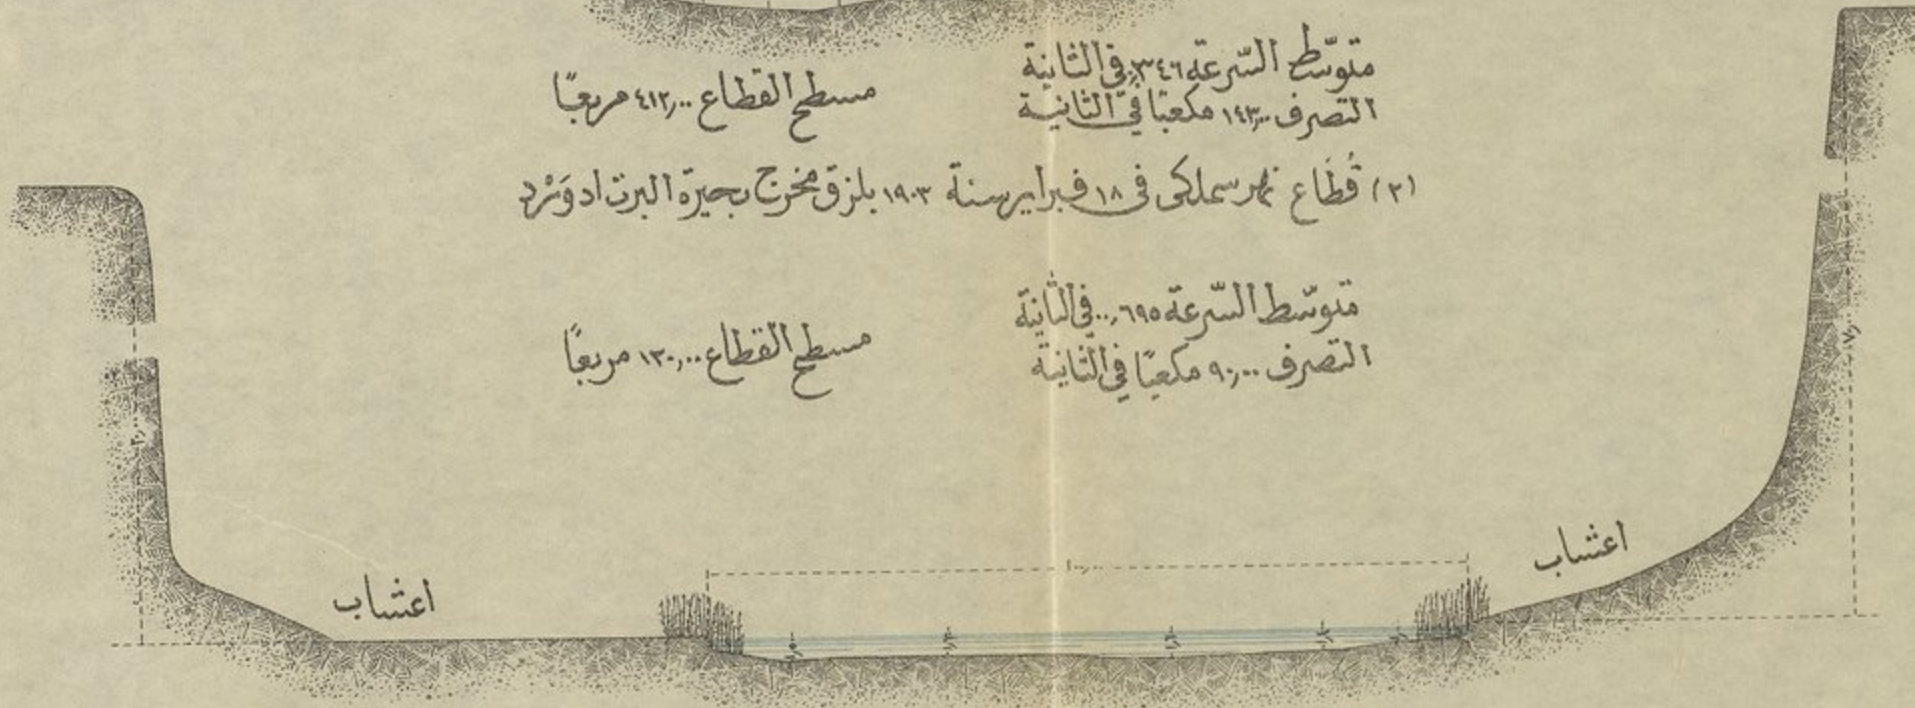 متوسّط السّرعة ٠٫٣٤٦ في الثانية
التصرف ١٤٣٫٠٠ مكعبًا في الثانية
مسطح القطاع ٤١٢٫٠٠ مربعًا
(٢) قُطَاع نهر سملكى فى ١٨ فبراير سنة ١٩٠٣ بلزق مخرج بحيرة البرت ادوَرْد
متوسّط السّرعة ٠٫٦٩٥ في الثانية
التصرف ٩٠٫٠٠ مكعبًا في الثانية
مسطح القطاع ١٣٠٫٠٠ مربعًا
اعشاب
اعشاب